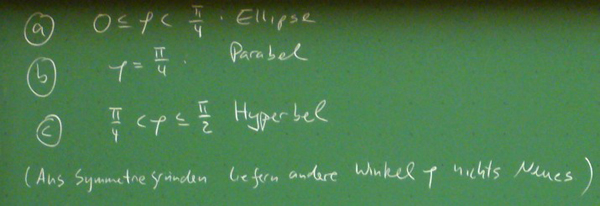 (a) 0 ≤ φ < π/4 . Ellipse
(b) φ = π/4 . Parabel
(c) π/4 < φ ≤ π/2 Hyperbel
(Aus Symmetriegründen liefern andere Winkel φ nichts Neues)